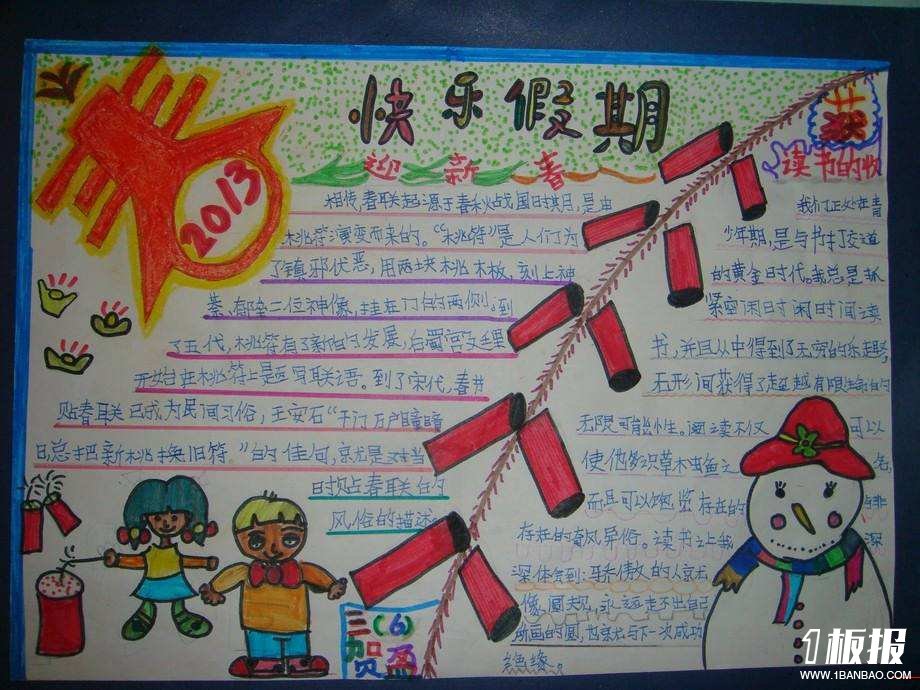 快乐假期
迎新春
2013
相传,春联起源于春秋战国时期,是由
桃符演变而来的。“桃符”是人们为
了镇邪伏恶,用两块桃木板,刻上神
荼、郁垒二位神像,挂在门的两侧。到
了五代,桃符有了新的发展,后蜀宫廷里
开始在桃符上题写联语。到了宋代,春节
贴春联已成为民间习俗,王安石“千门万户瞳瞳
日,总把新桃换旧符。”的佳句,就是对当
时贴春联的
风俗的描述。
读书的收获
我们正处在青
少年期,是与书打交道
的黄金时代。我总是抓
紧空闲时闲时间读
书,并且从中得到了无穷的乐趣,
无形间获得了超越有限生命的
无限可能性。阅读不仅可以
使他多识草木虫鱼之名,
而且可以饱览存在的非
存在的奇风异俗。读书让我深
深体会到:骄傲的人就
像圆规,永远走不出自己
所画的圆,也就与下一次成功
绝缘。
三(6)
贺盈
1板报
WWW.1BANBAO.COM